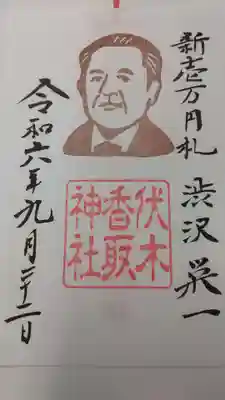 新壱万円札 渋沢栄一
伏木
香取
神社
令和六年九月二十二日